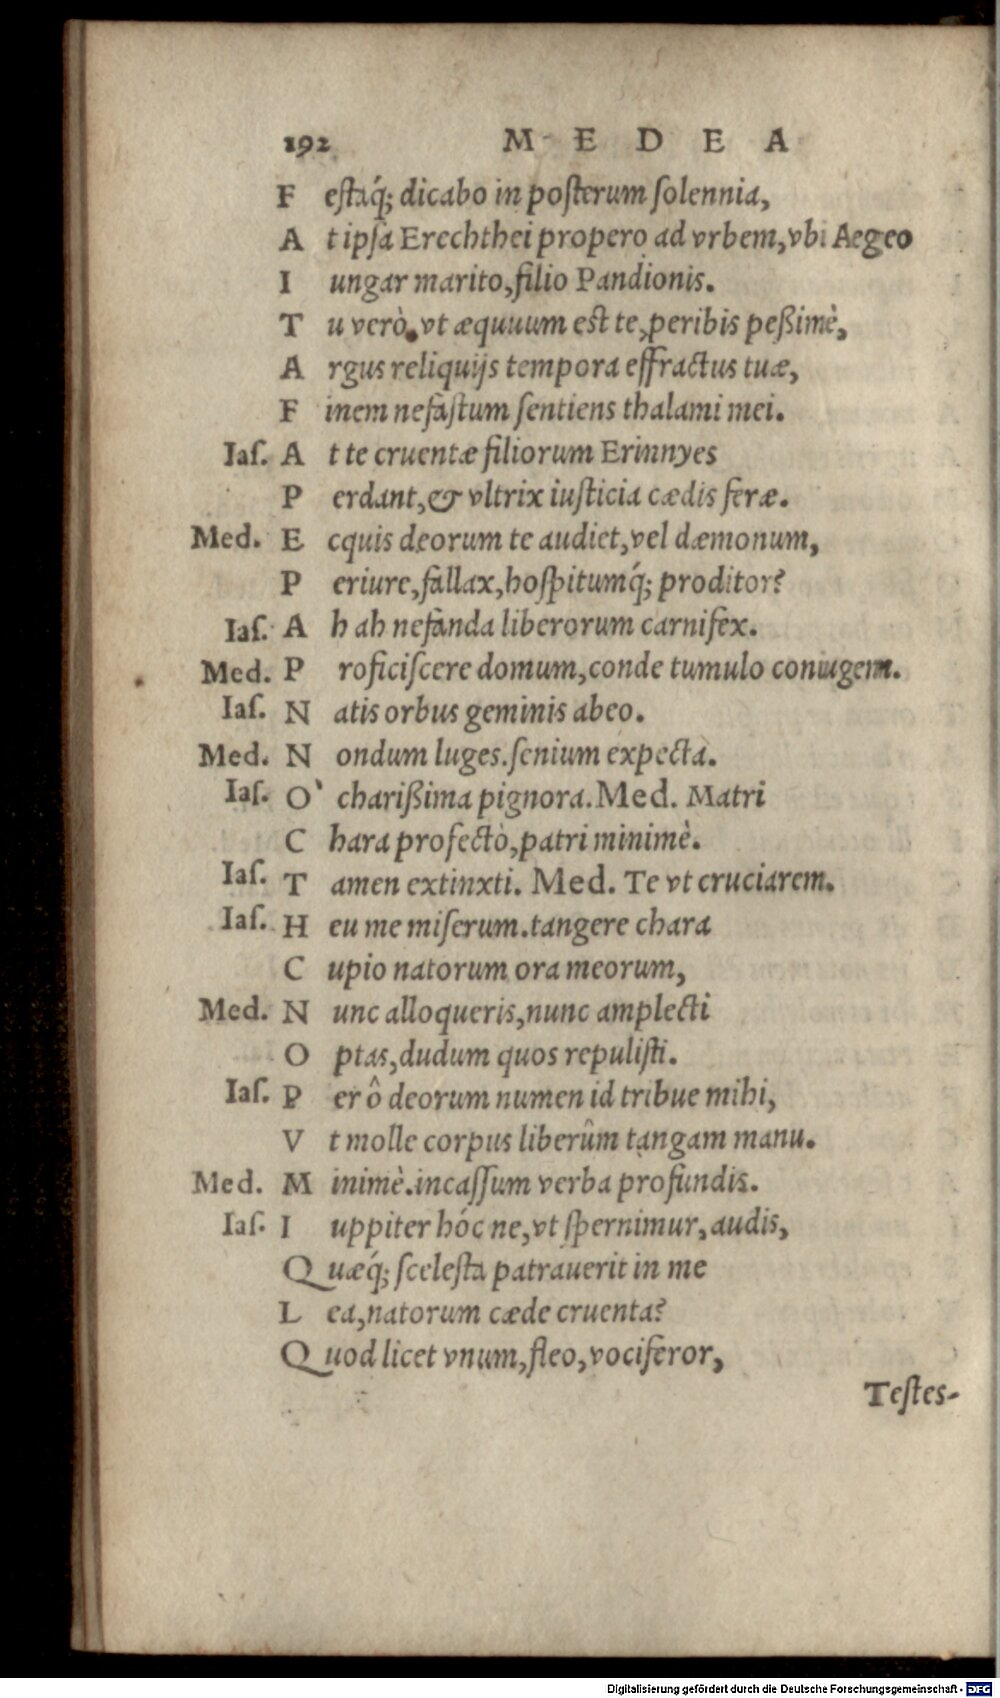 192 M E D E A
F estaq́; dicabo in posterum solennia,
A t ipsa Erechthei propero ad vrbem, vbi Aegeo
I ungar marito, filio Pandionis.
T u verò, vt æquuum est te, peribis peßimè,
A rgus reliquijs tempora effractus tuæ,
F inem nefastum sentiens thalami mei.
Ias. A t te cruentæ filiorum Erinnyes
P erdant, & vltrix iusticia cædis feræ.
Med. E cquis deorum te audiet, vel dæmonum,
P eriure, fallax, hospitumq́; proditor?
Ias. A h ah nefanda liberorum carnifex.
Med. P roficiscere domum, conde tumulo coniugem.
Ias. N atis orbus geminis abeo.
Med. N ondum luges. senium expecta.
Ias. O' charißima pignora. Med. Matri
C hara profectò, patri minimè.
Ias. T amen extinxti. Med. Te vt cruciarem.
Ias. H eu me miserum. tangere chara
C upio natorum ora meorum,
Med. N unc alloqueris, nunc amplecti
O ptas, dudum quos repulisti.
Ias. P er ô deorum numen id tribue mihi,
V t molle corpus liberûm tangam manu.
Med. M inimè. incassum verba profundis.
Ias. I uppiter hóc ne, vt spernimur, audis,
Q uæq́; scelesta patrauerit in me
L ea, natorum cæde cruenta?
Q uod licet vnum, fleo, vociferor,
Testes-
Digitalisierung gefördert durch die Deutsche Forschungsgemeinschaft - DFG